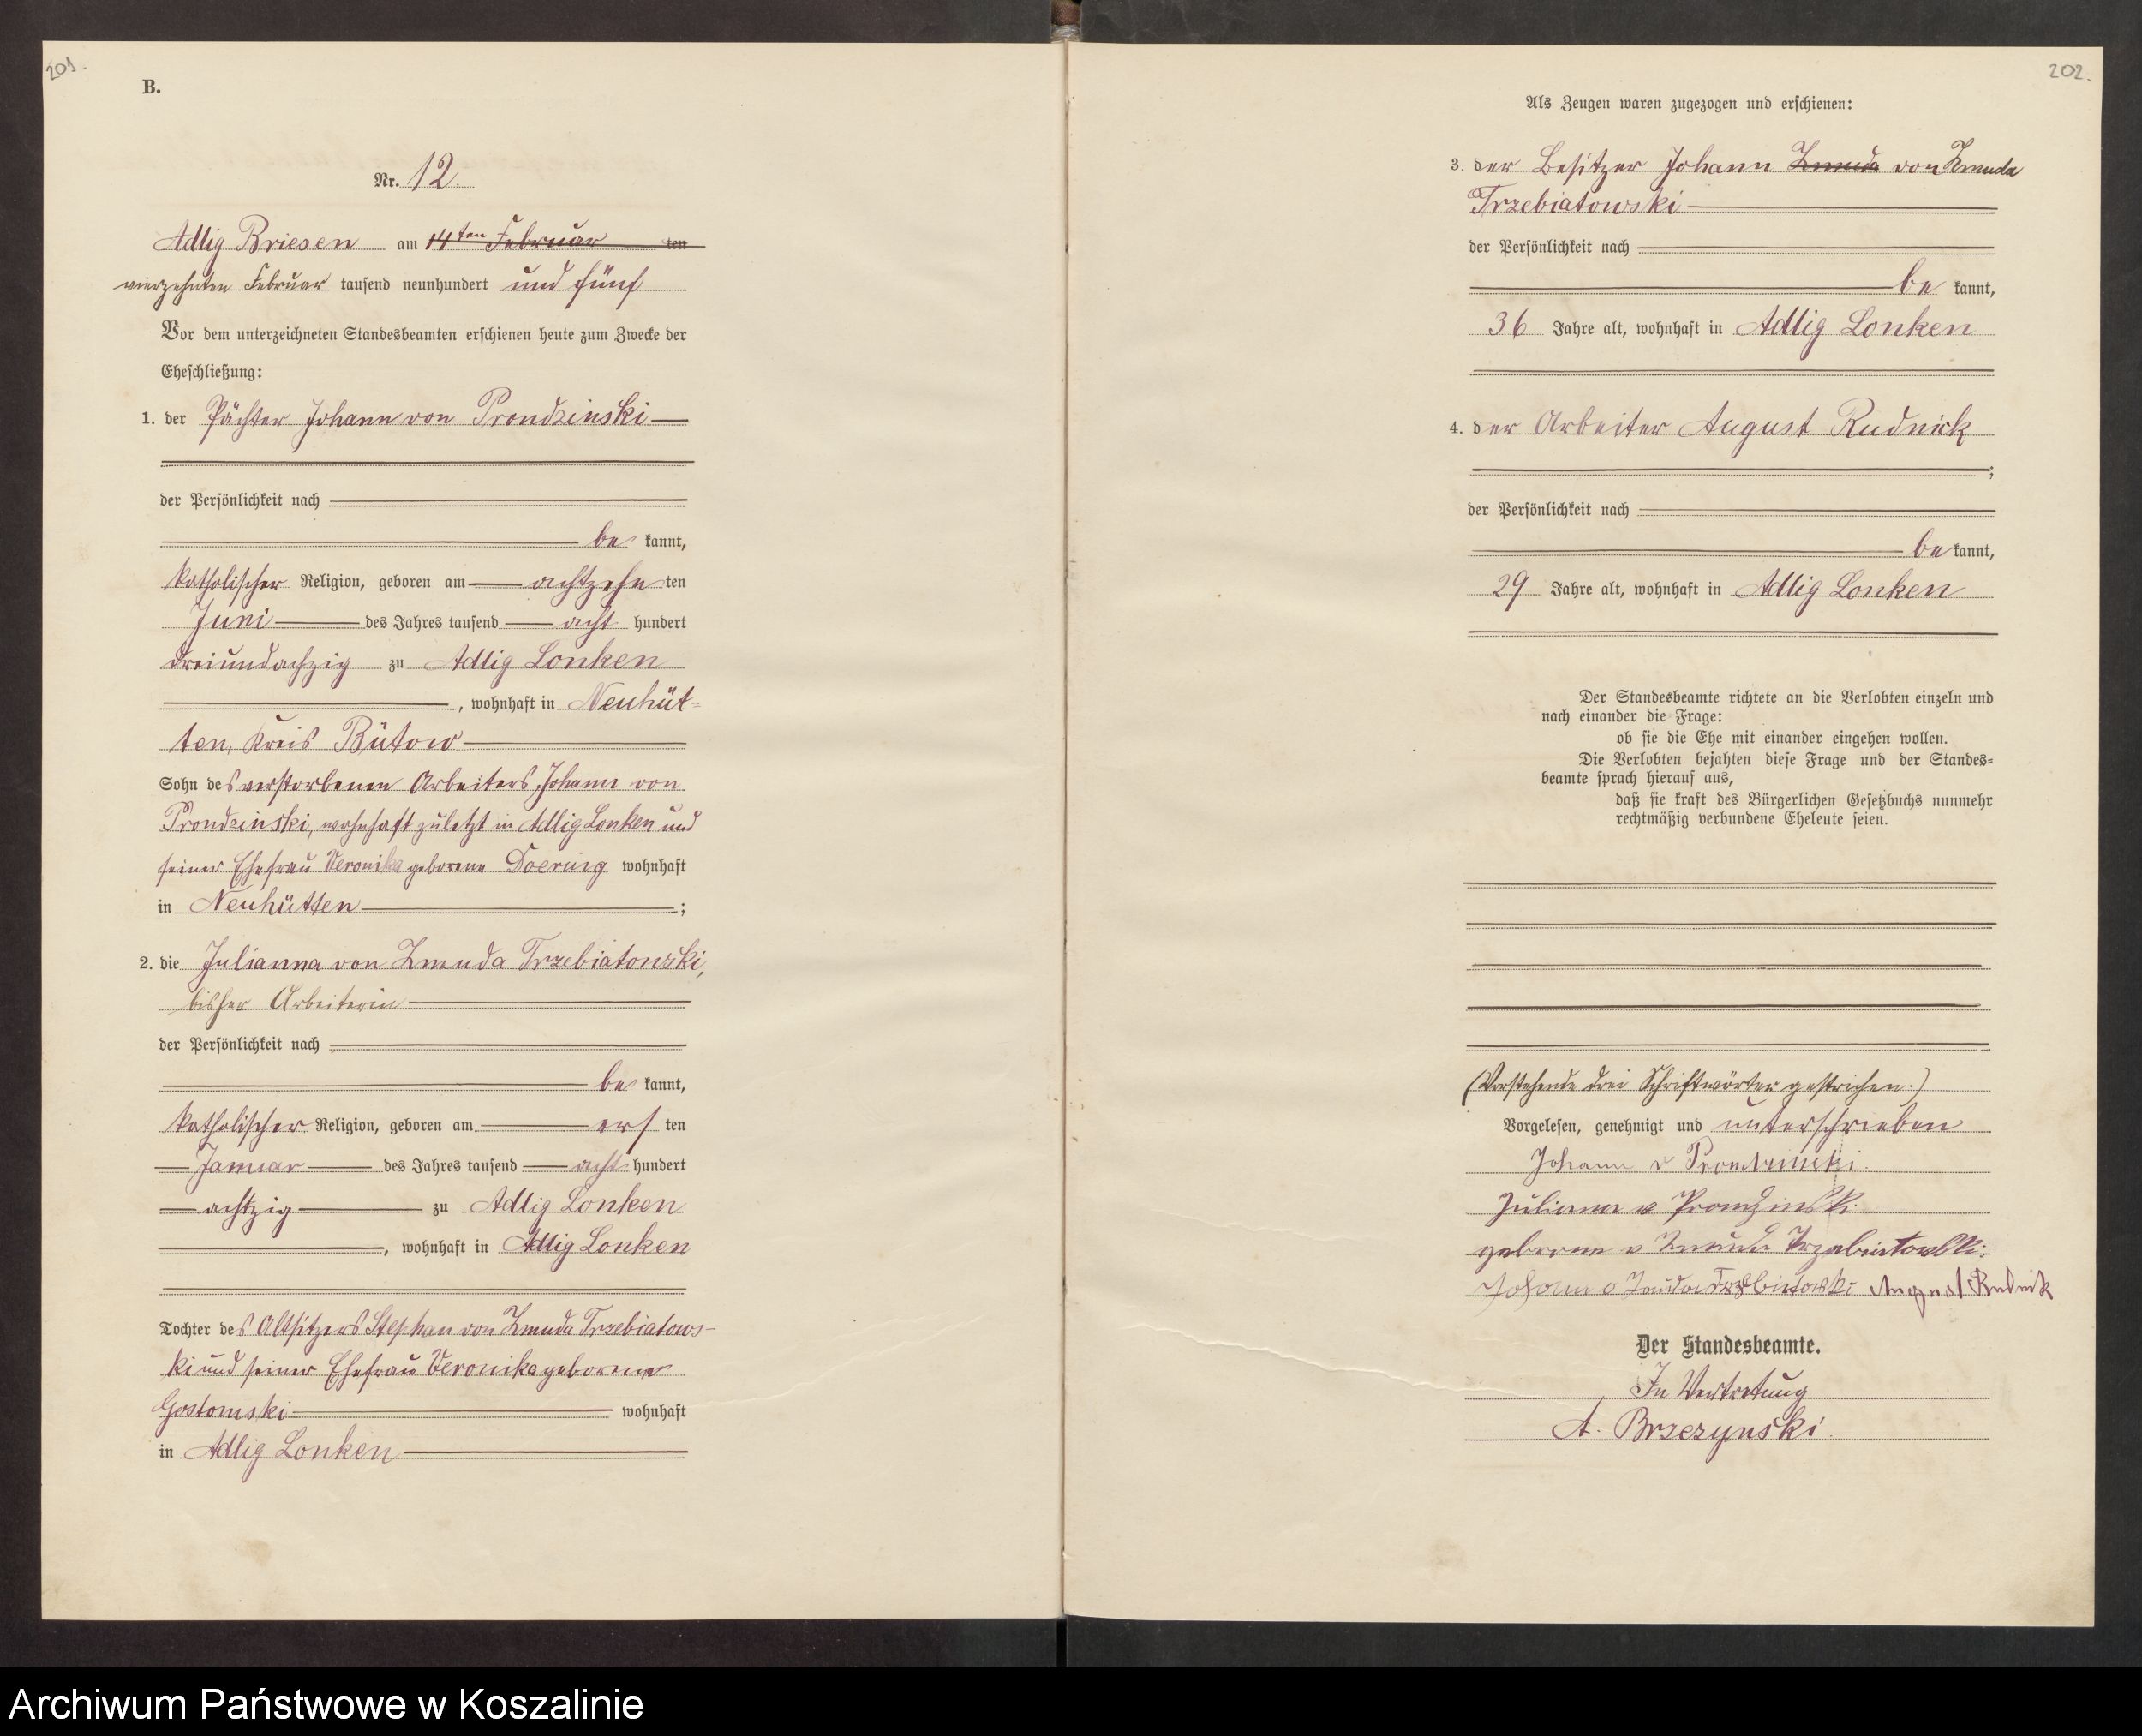 201.
B.
Nr. 12.
Adlig Briesen am 14ten Februar ten
vierzehnten Februar tausend neunhundert und fünf
Vor dem unterzeichneten Standesbeamten erschienen heute zum Zwecke der
Eheschließung:
1. der Pächter Johann von Prondzinski
der Persönlichkeit nach
be kannt,
katholischer Religion, geboren am achtzehn ten
Juni des Jahres tausend acht hundert
dreiundachzig zu Adlig Lonken
, wohnhaft in Neuhüt-
ten, Kreis Bütow
Sohn des verstorbenen Arbeiters Johann von
Prondzinski, wohnhaft zuletzt in Adlig Lonken und
seiner Ehefrau Veronika geborene Doering wohnhaft
in Neuhütten ;
2. die Julianna von Zmuda Trzebiatowski,
bisher Arbeiterin
der Persönlichkeit nach
be kannt,
katholischer Religion, geboren am ers ten
Januar des Jahres tausend acht hundert
achtzig zu Adlig Lonken
, wohnhaft in Adlig Lonken
Tochter des Altsitzers Stephan von Zmuda Trzebiatows-
ki und seiner Ehefrau Veronika geborene
Gostomski wohnhaft
in Adlig Lonken
202.
Als Zeugen waren zugezogen und erschienen:
3. der Besitzer Johann Zmuda von Zmuda
Trzebiatowski
der Persönlichkeit nach
be kannt,
36 Jahre alt, wohnhaft in Adlig Lonken
4. der Arbeiter August Rudnick
;
der Persönlichkeit nach
be kannt,
29 Jahre alt, wohnhaft in Adlig Lonken
Der Standesbeamte richtete an die Verlobten einzeln und
nach einander die Frage:
ob sie die Ehe mit einander eingehen wollen.
Die Verlobten bejahten diese Frage und der Standes-
beamte sprach hierauf aus,
daß sie kraft des Bürgerlichen Gesetzbuchs nunmehr
rechtmäßig verbundene Eheleute seien.
(Vorstehende drei Schriftwörter gestrichen.)
Vorgelesen, genehmigt und unterschrieben
Johann v Prondzinski.
Juliana v Prondzinski
geborene v Zmuda Trzebiatowski.
Johann v Zmuda Trzebiatowski August Rudnik
Der Standesbeamte.
In Vertretung
A. Brzezynski.
Archiwum Państwowe w Koszalinie